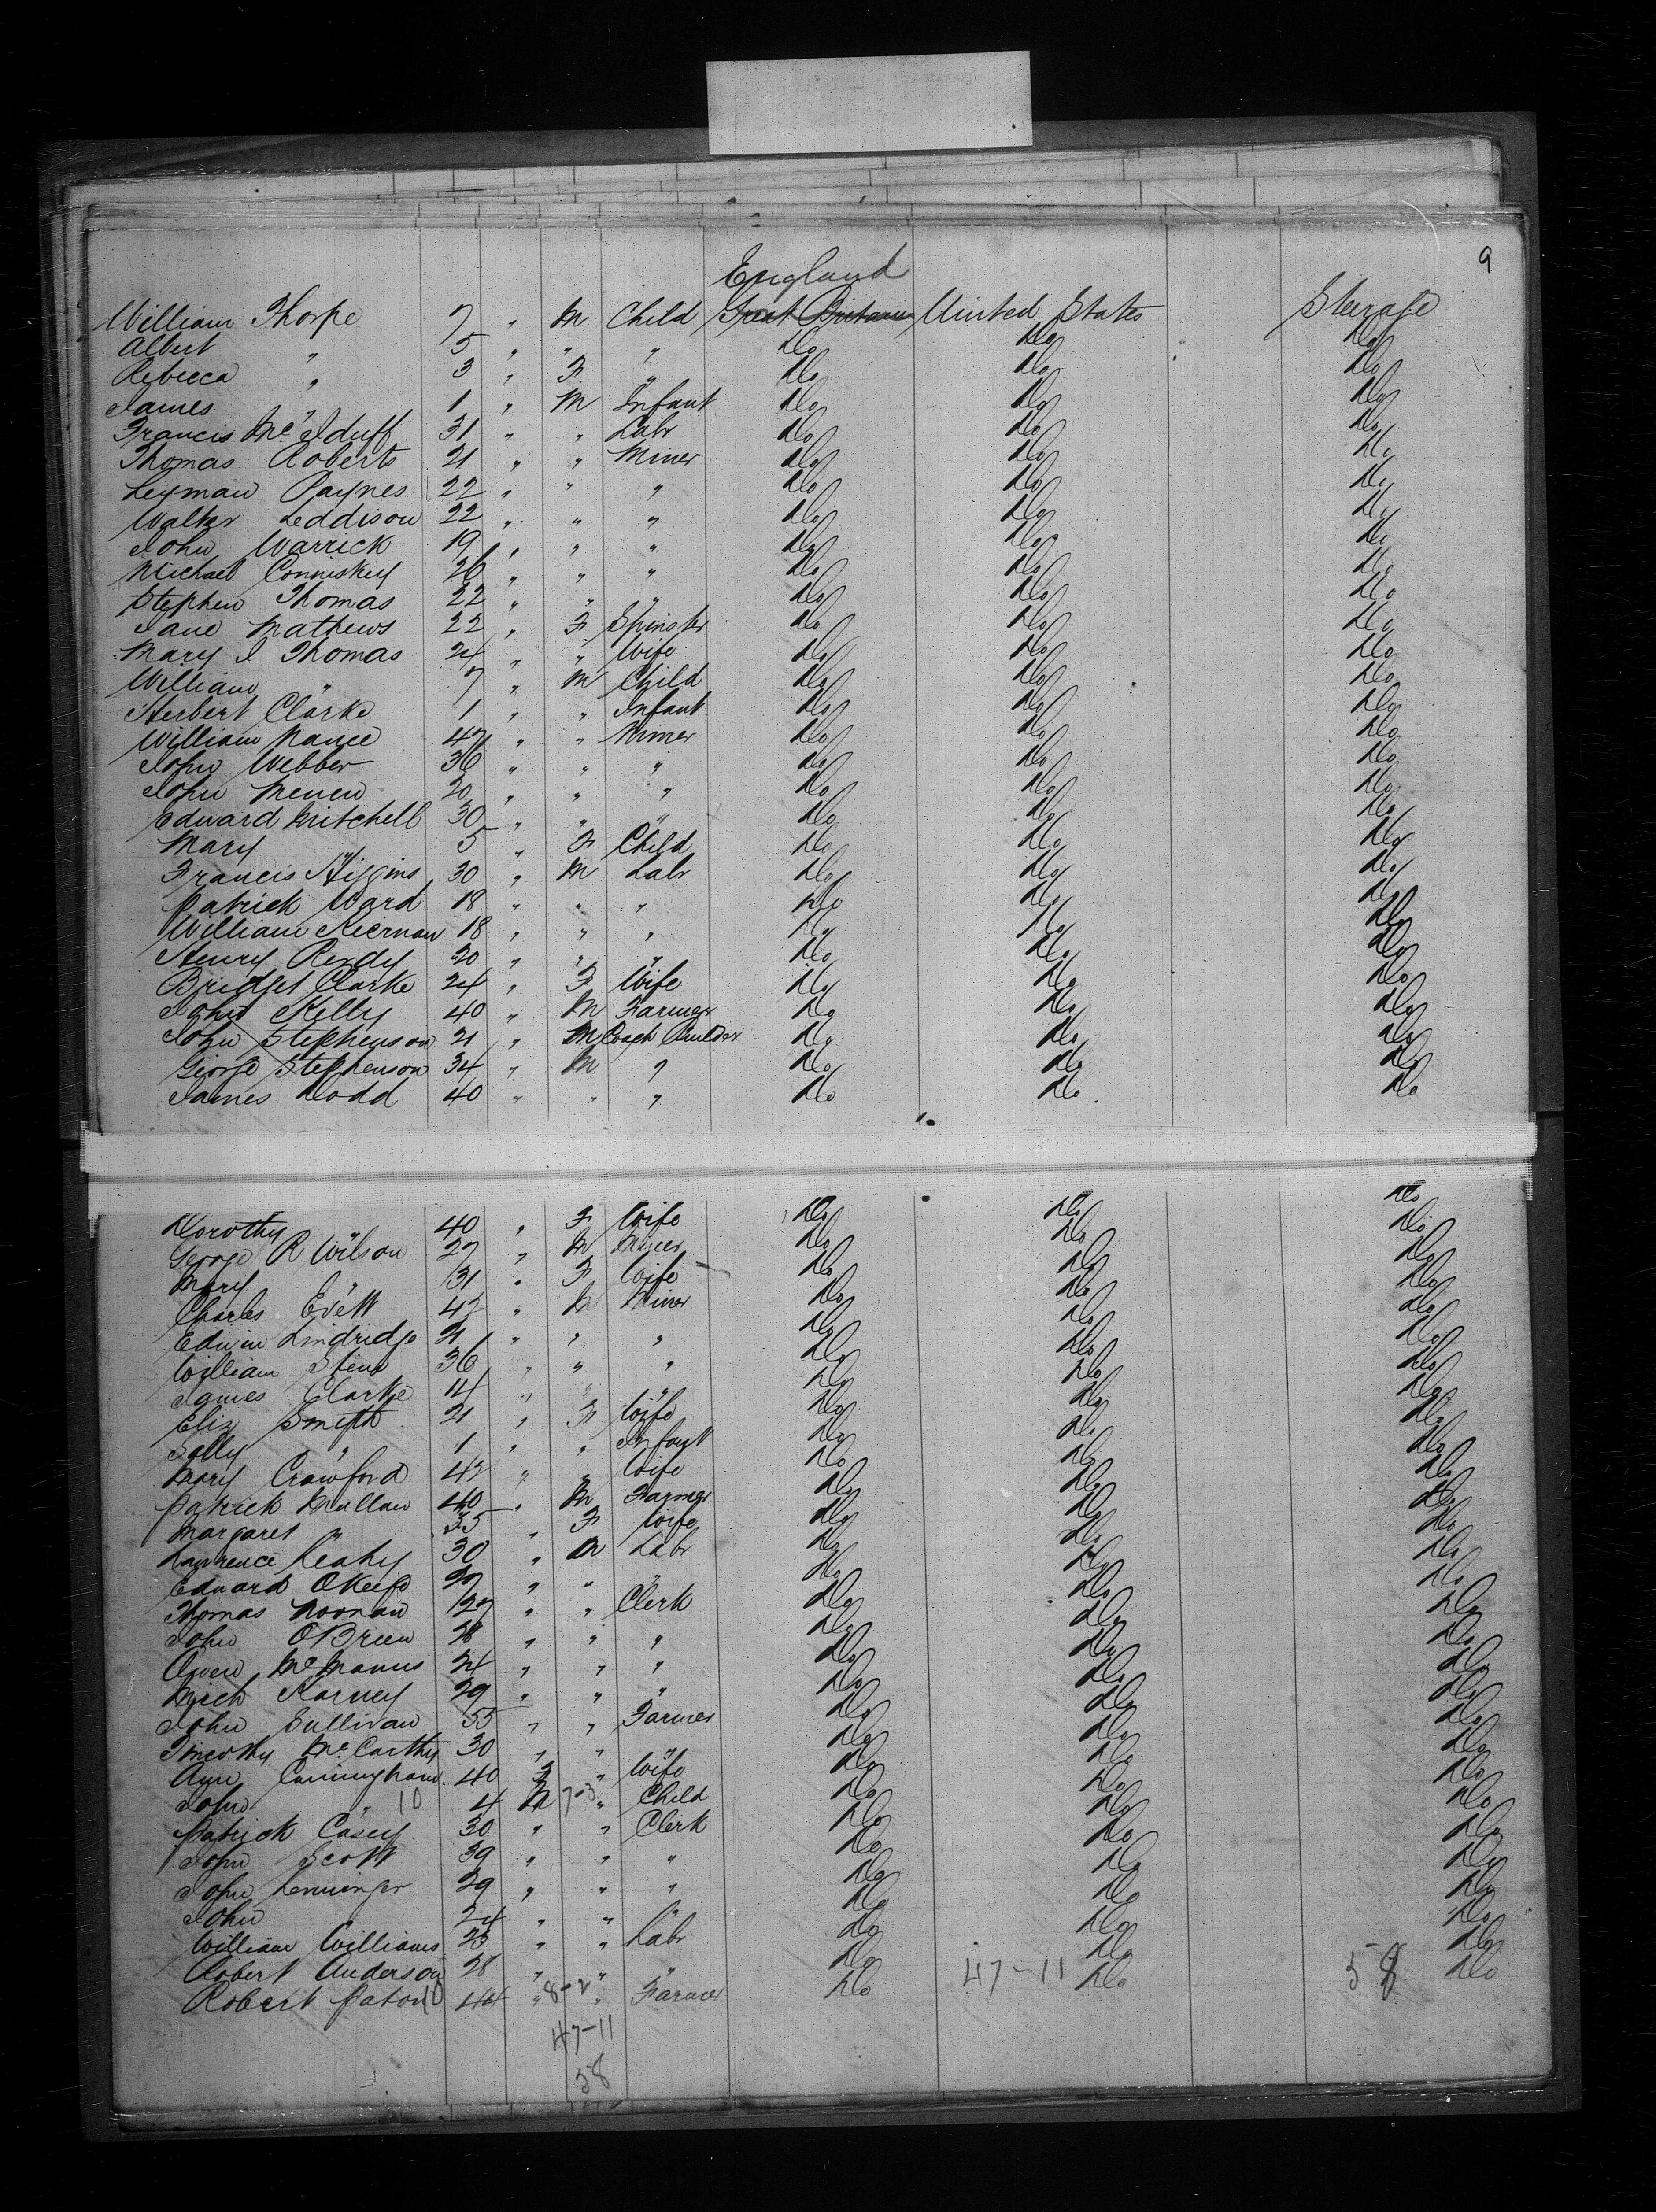 9
England
William Thorpe 7 " M Child Great Britain United States Steerage
Albert " 5 " " " Do Do Do
Rebecca " 3 " F " Do Do Do
James " 1 " M Infant Do Do Do
Francis McIlduff 31 " " Labr Do Do Do
Thomas Roberts 21 " " Miner Do Do Do
Leyman Raynes 22 " " " Do Do Do
Walter Leddison 22 " " " Do Do Do
John Warrick 19 " " " Do Do Do
Michael Conniskey 26 " " " Do Do Do
Stephen Thomas 22 " " " Do Do Do
Jane Mathews 22 " F Spinster Do Do Do
Mary J Thomas 24 " " Wife Do Do Do
William " 7 " M Child Do Do Do
Herbert Clarke 1 " " Infant Do Do Do
William Nance 47 " " Miner Do Do Do
John Webber 36 " " " Do Do Do
John Menew 20 " " " Do Do Do
Edward Mitchell 30 " " " Do Do Do
Mary " 5 " F Child Do Do Do
Francis Higgins 30 " M Labr Do Do Do
Patrick Ward 18 " " " Do Do Do
William Kiernan 18 " " " Do Do Do
Henry Reddy 20 " " " Do Do Do
Bridget Clarke 24 " F Wife Do Do Do
John Kelly 40 " M Farmer Do Do Do
John Stephenson 21 " M Coach Builder Do Do Do
George Stephenson 34 " M " Do Do Do
James Dodd 40 " " " Do Do Do
Dorothy " 40 " F Wife Do Do Do
George R Wilson 27 " M Miner Do Do Do
Mary " 31 " F Wife Do Do Do
Charles Evett 42 " M Miner Do Do Do
Edwin Lindridge 21 " " " Do Do Do
William 36 " " " Do Do Do
James Clarke 14 " " " Do Do Do
Eliz Smith 21 " F Wife Do Do Do
Sally " 1 " " Infant Do Do Do
Mary Crawford 42 " " Wife Do Do Do
Patrick Mullan 40 " M Farmer Do Do Do
Margaret " 35 " F Wife Do Do Do
Lawrence Leahy 30 " M Labr Do Do Do
Edward OKeefe 27 " " " Do Do Do
Thomas Noonan 27 " " Clerk Do Do Do
John OBrien 28 " " " Do Do Do
Owen McManus 24 " " " Do Do Do
Mich Karney 29 " " " Do Do Do
John Sullivan 55 " " Farmer Do Do Do
Timothy McCarthy 30 " " " Do Do Do
Ann Cunningham 40 F " Wife Do Do Do
John " 10 4 M 7-3 " Child Do Do Do
Patrick Casey 30 " " Clerk Do Do Do
John Scott 39 " " " Do Do Do
John Lenninger 29 " " " Do Do Do
John 24 " " " Do Do Do
William Williams 23 " " Labr Do Do Do
Robert Anderson 28 " " " Do Do Do
Robert Paton 10 44 " 8-2 " Farmer Do 47-11 Do 58 Do
47-11
58